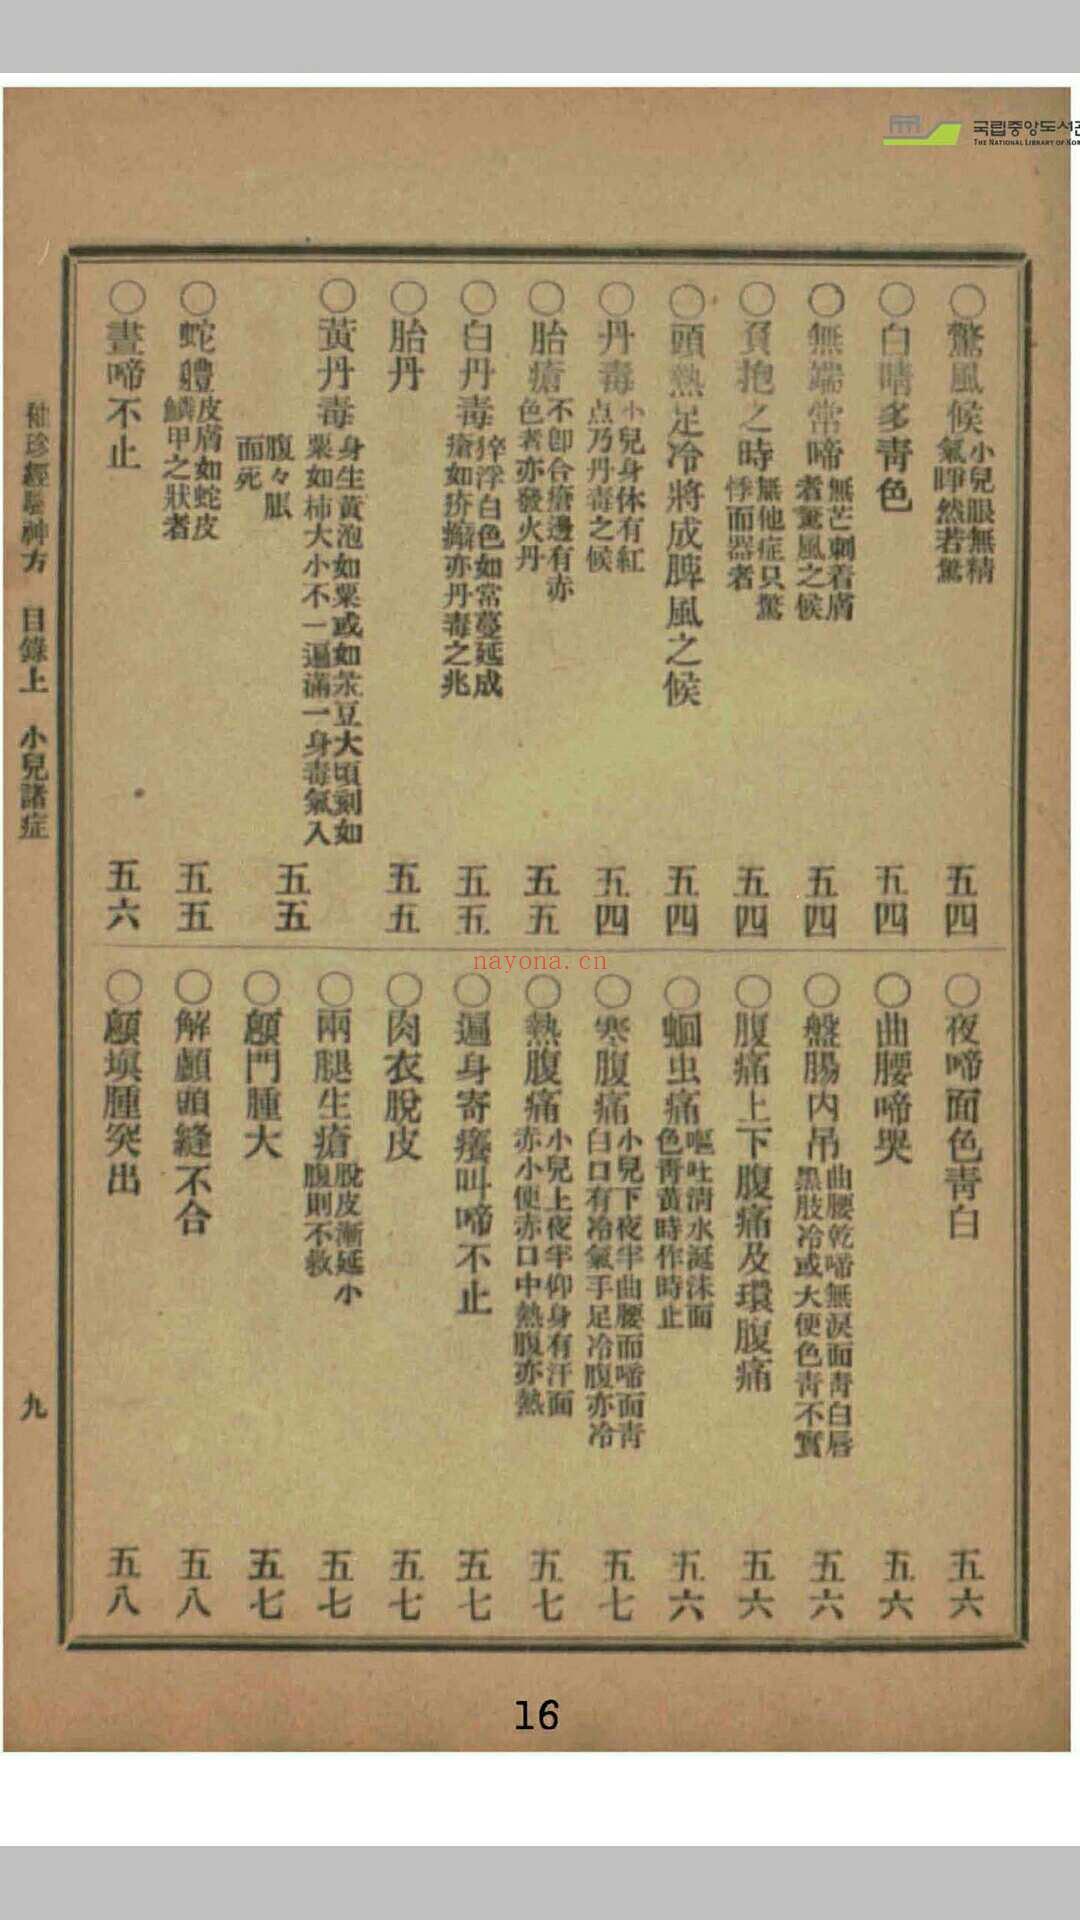 국립중앙도서관
THE NATIONAL LIBRARY OF KOR
○驚風候 小兒眼無精氣㖷然若驚 五四
○白睛多靑色 五四
○無端常啼 無芒刺着膚者驚風之候 五四
○負抱之時 無他症只驚悸而器者 五四
○頭熱足冷將成脾風之候 五四
○丹毒 小兒身体有紅点乃丹毒之候 五四
○胎瘡 不卽合瘡邊有赤色者亦發火丹 五五
○白丹毒 猝浮白色如常蔓延成瘡如疥癬亦丹毒之兆 五五
○胎丹 五五
○黃丹毒 身生黃泡如粟或如菉豆大頃刻如粟如柿大小不一遍滿一身毒氣入腹々脹而死 五五
○蛇軆 皮膚如蛇皮鱗甲之狀者 五五
○晝啼不止 五六
○夜啼面色靑白 五六
○曲腰啼哭 五六
○盤腸內吊 曲腰乾啼無淚面靑白唇黑肢冷或大便色靑不實 五六
○腹痛上下腹痛及環腹痛 五六
○蛔虫痛 嘔吐淸水涎沫面色靑黃時作時止 五六
○寒腹痛 小兒下夜半曲腰而啼面靑白口有冷氣手足冷腹亦冷 五七
○熱腹痛 小兒上夜半仰身有汗面赤小便赤口中熱腹亦熱 五七
○遍身寄癢叫啼不止 五七
○肉衣脫皮 五七
○兩腿生瘡 脫皮漸延小腹則不救 五七
○顖門腫大 五七
○解顱頭縫不合 五八
○顖塡腫突出 五八
袖珍經驗神方 目錄上 小兒諸症 九
nayona.cn
16